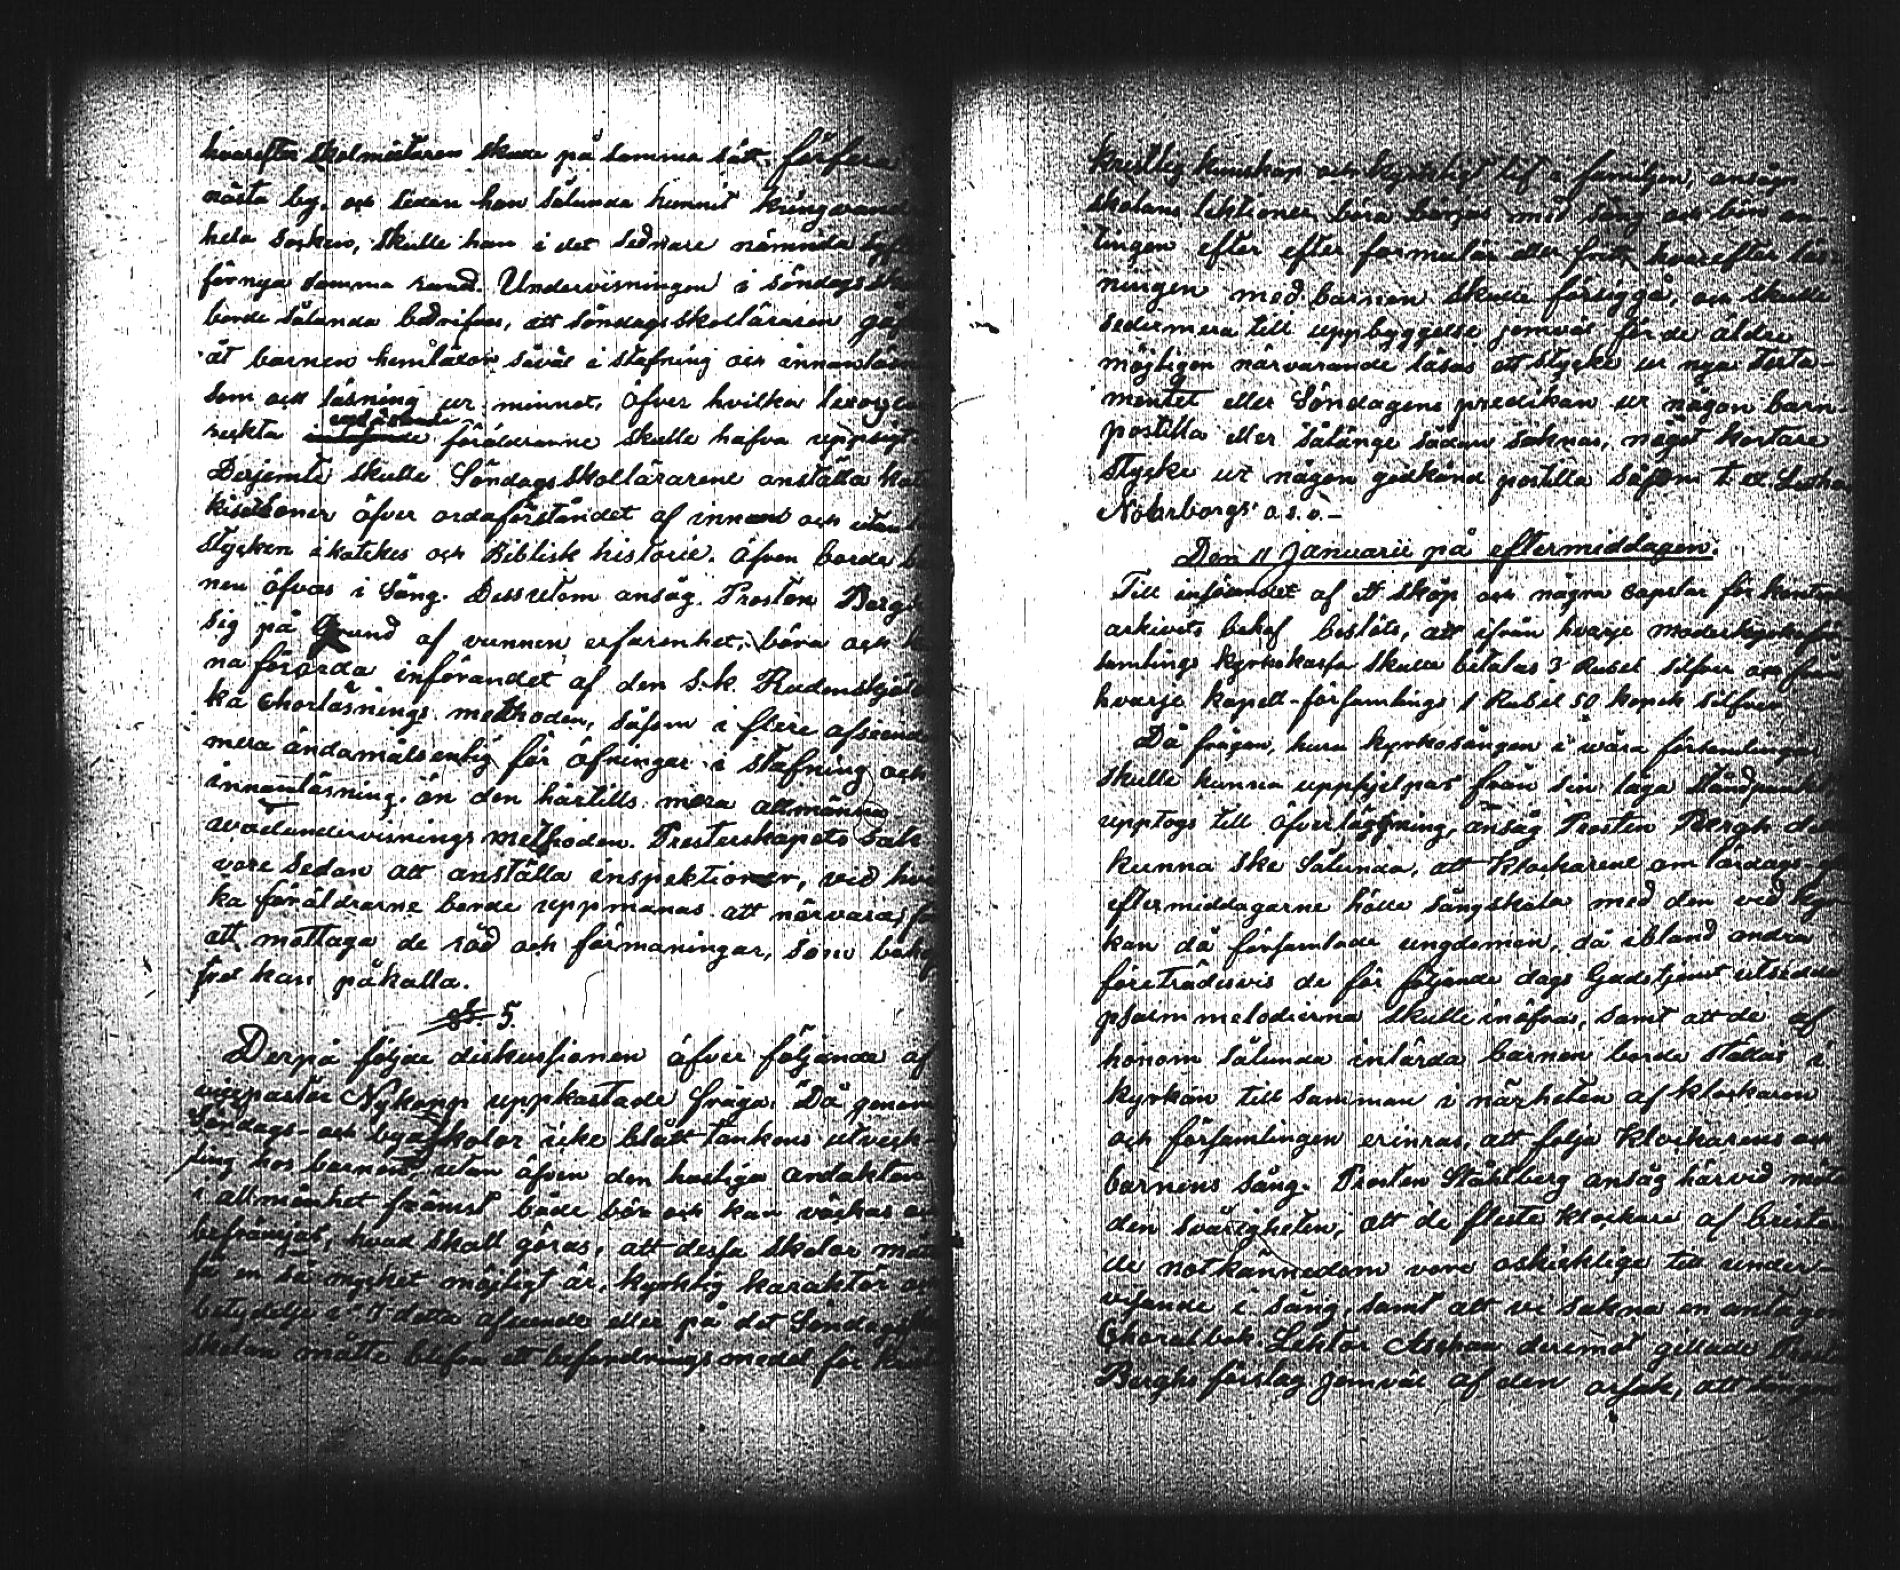 hvarefter skolmästaren skulle på samma sätt förfara
nästa by, och sedan han sålunda hunnit kringvand
hela socken, skulle han i det sednare nämnda
förnya samma rund. Undervisningen i söndags
borde sålunda bedrifvas, att söndagsskolläraren
åt barnen hemläxor såväl i stafning och innanläsn
som ock läsning ur minnet, öfver hvilka lexors
föräldrarne skulle hafva uppsigt.
Derjemte skulle Söndagsskollärarene anställa kat
kisationer öfver ordaförståndet af innan och utan
stycken i katekes och Biblisk historie. Äfven borde b
nen öfvas i Sång. Dessutom ansåg Prosten Bergh
sig på grund af vunnen erfarenhet, böra och
na förorda införandet af den s.k. Rudenskjöld
ka Chorläsnings methoden, såsom i flere afseende
mera ändamålsenlig för öfningar i stafning och
innanläsning, än den härtills mera allmänna
undervisnings methoden. Presterskapets sak
vore sedan att anställa inspektioner, vid hvil
ka föräldrarne borde uppmanas att närvara, för
att mottaga de råd och förmaningar, som behof
vet kan påkalla.
§ 5.
Derpå följde diskussionen öfver följande af
vicepastor Nykopp uppkastade fråga: Då genom
Söndags- och byaskolor icke blott tankens utveck-
ling hos barnen, utan äfven den husliga andakten
i allmänhet främst både bör och kan väckas och
befrämjas, hvad skall göras, att dessa skolor måtte
få en så mycket möjligt är, kyrklig karaktär och
betydelse? I detta afseende eller på det Söndags
skolan måtte blifva ett befordringsmedel för krist
kristlig kunskap och kyrkligt lif i familjen, ansågs
skolans lektioner böra börjas med sång och bön an-
tingen efter efter formulär eller fritt, hvarefter läs-
ningen med barnen skulle försiggå, och skulle
sedermera till uppbyggelse jemväl för de äldre
möjligen närvarande läsas ett stycke ur nya Testa-
mentet eller Söndagens predikan ur någon barn
postilla eller sålänge sådan saknas, något kortare
stycke ur någon godkänd postilla såsom t. ex. Luther
Nohrborgs o.s.v.-
Den 11 Januarii på eftermiddagen.
Till införandet af ett skåp och några capslar för kontrakts
arkivets behof beslöts, att ifrån hvarje moderkyrkoför-
samlings kyrkokassa skulle betalas 3 Rubel silfver och från
hvarje kapell-församlings 1 Rubel 50 kopek silfver
Då frågan, huru kyrkosången i våra församlingar
skulle kunna upphjelpas från sin låga ståndpunkt
upptogs till öfverläggning, ansåg Prosten Bergh det
kunna ske sålunda, att klockarene om lördags
eftermiddagarne hölle sångskola med den vid kyr
kan då församlade ungdomen, då ibland andra
företrädesvis de för följande dags Gudstjenst utsedda
psalmmelodierna skulle inöfvas, samt att de af
honom sålunda inlärda barnen borde ställas i
kyrkan till samman i närheten af klockaren
och församlingen erinras, att följa klockarens och
barnens sång. Prosten Ståhlberg ansåg härvid möta
den svårigheten, att de fleste klockare af bristan
de notkännedom vore oskicklige till under-
visande i sång, samt att vi sakna en antagen
Choralbok. Lektor Aschan deremot gillade Prosten
Berghs förslag jemväl af den orsak, att sången